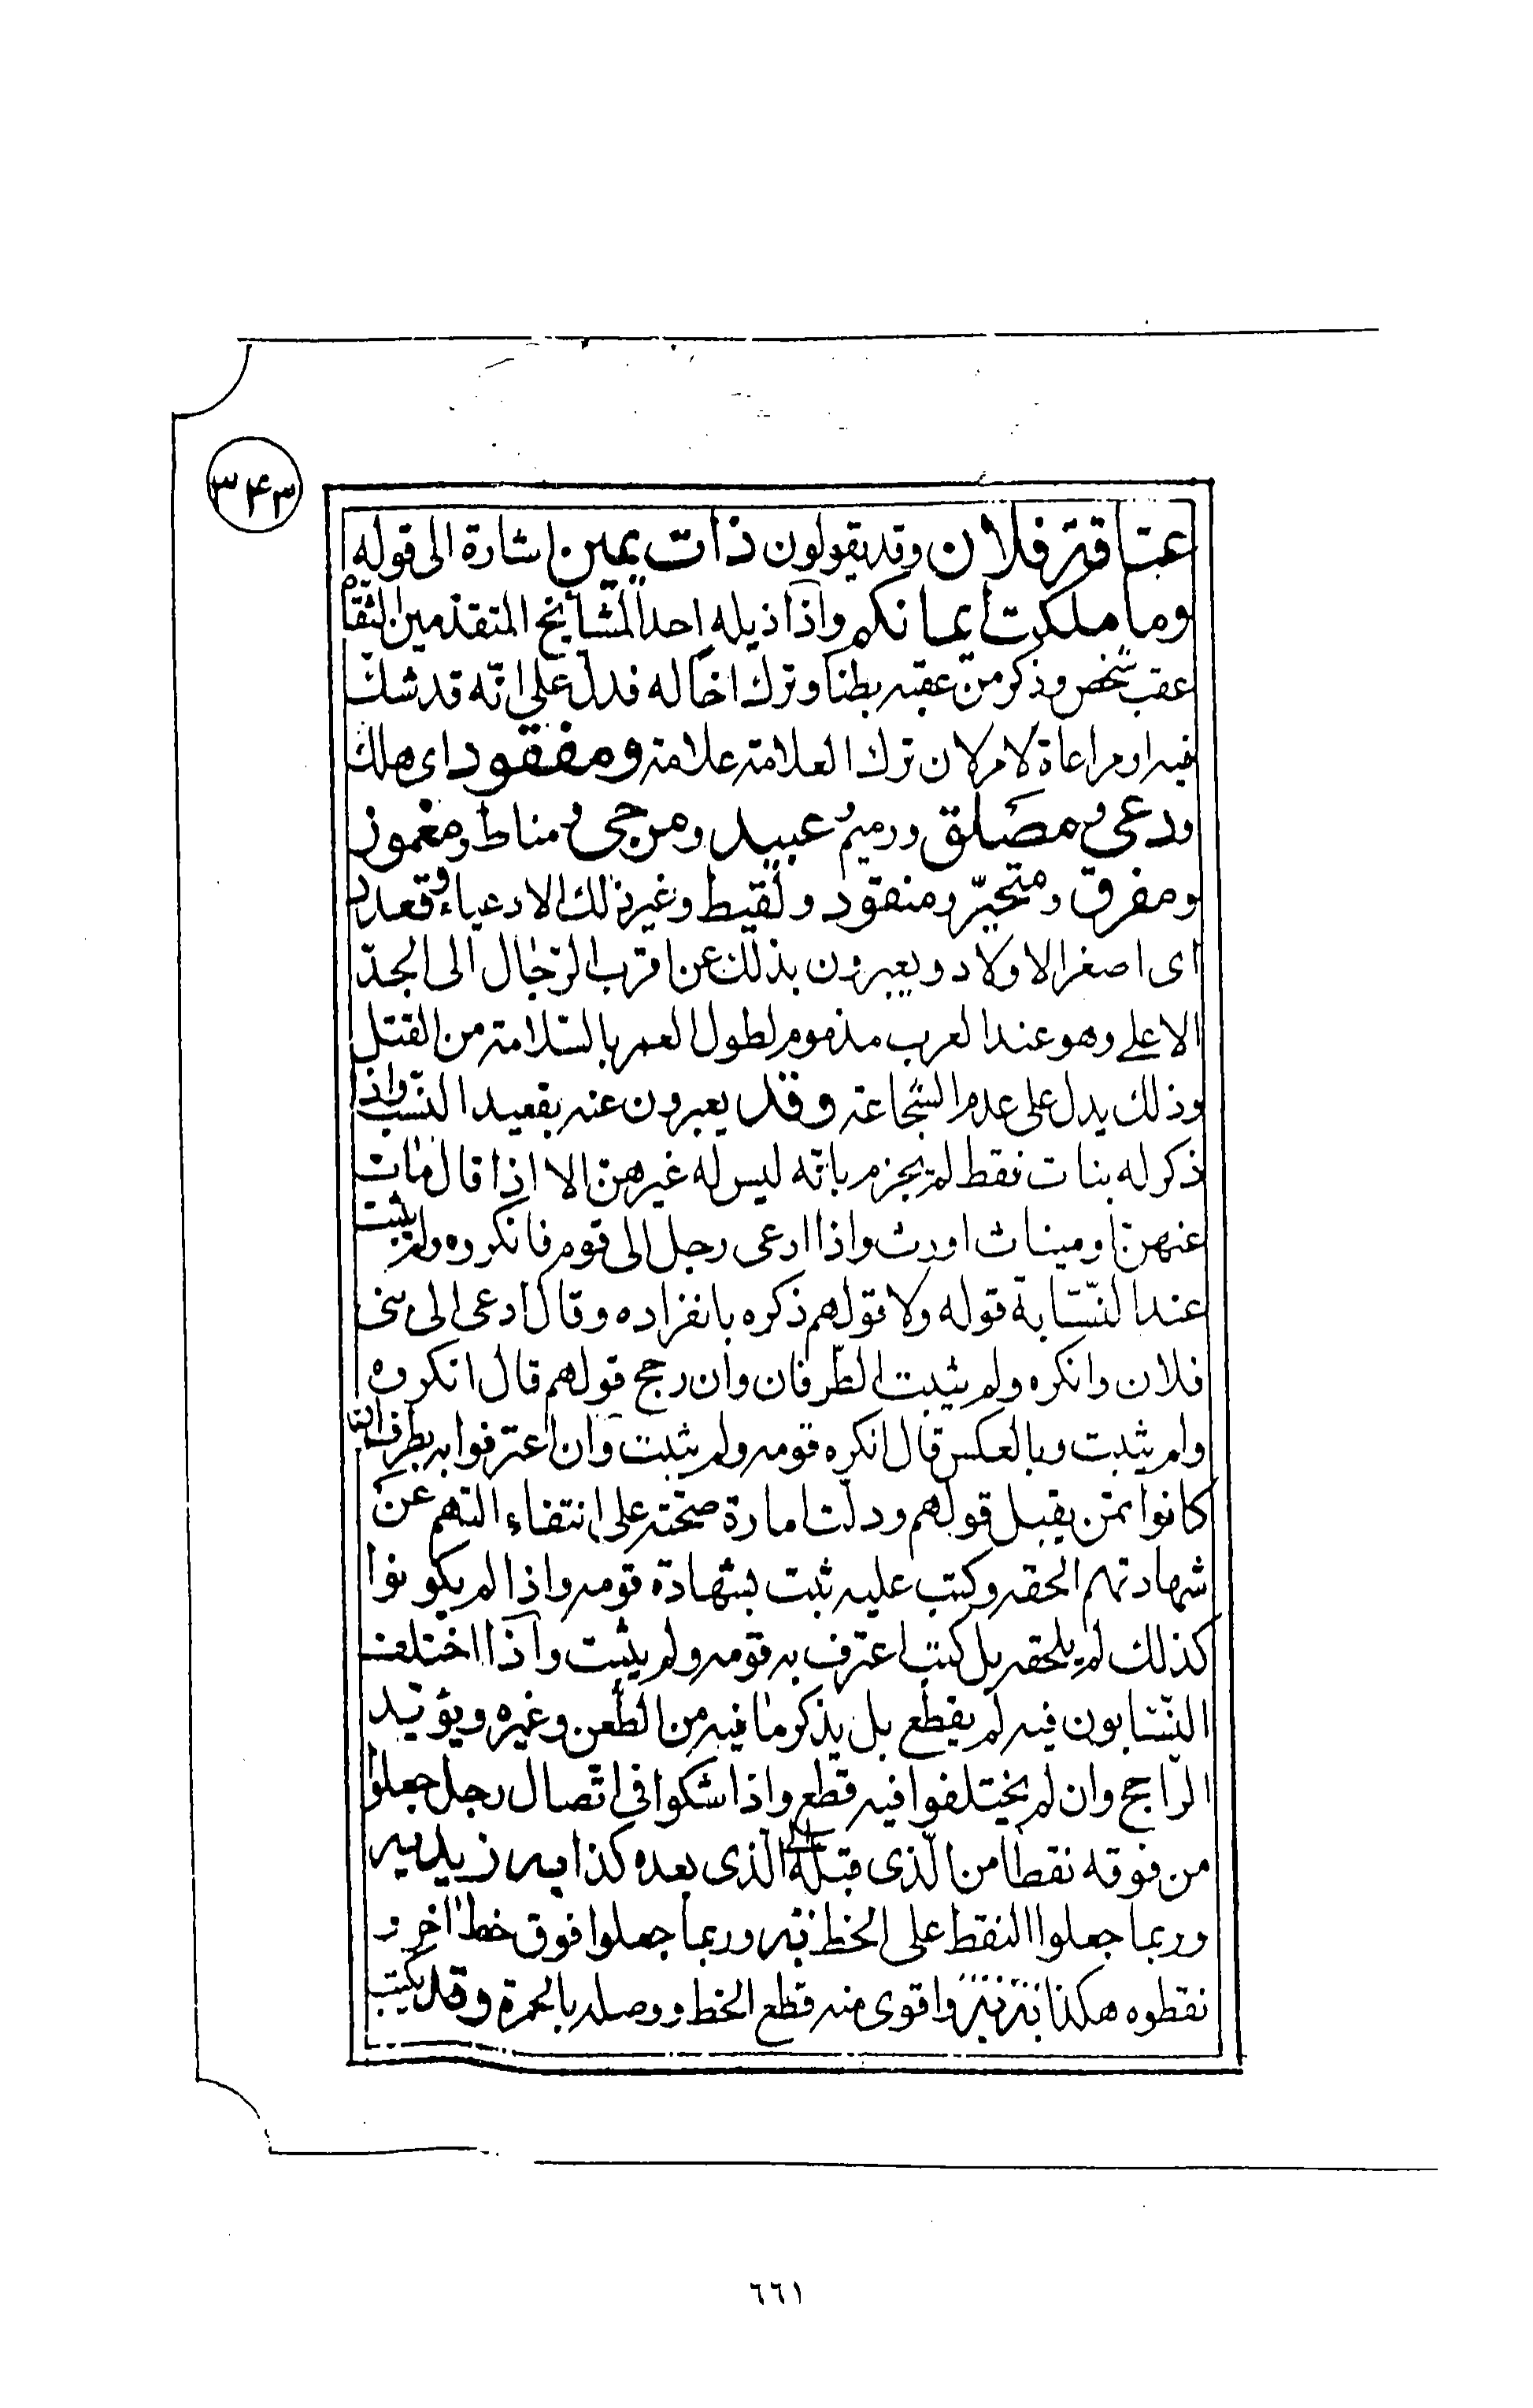 ٣۴٣
عتاقة فلان وقد يقولون ذات يمين اشارة الى قوله
وما ملكت ايمانكم واذا ذيله احد المشايخ المتقدمين الثقاة
عقب شخص وذكر من عقبه بطنا وترك اخا له فدل على انّه قد شك
فيه او مراعاة لامر لان ترك العلامة علامة ومفقود اى هلك
ودعى مصلق ورميم عبيد ومرجى مناط ومغموز
ومفرق ومتحيّر ومنقود ولقيط وغير ذلك الادعياء وقعدد
اى اصغر الاولاد ويعبرون بذلك عن اقرب الرّجال الى الجدّ
الاعلى وهو عند العرب مذموم لطول العمر بالسّلامة من القتل
وذلك يدل على عدم الشّجاعة وقد يعبرون عنه بقعيد النّسب واذا
ذكر له بنات فقط لم يجزم بانّه ليس له غيرهنّ الا اذا قال مات
عنهنّ او ميناث اورث واذا ادعى رجل الى قوم فانكروه ولم يثبت
عند النّسّابة قوله ولا قولهم ذكره بانفراده وقال ادعى الى بنى
فلان وانكره ولم يثبت الطّرفان وان رجح قولهم قال انكروه
ولم يثبت وبالعكس قال انكره قومه ولم يثبت وان اعترفوا به بطرف ان
كانوا ممّن يقبل قولهم ودلّت امارة صحّته على انتفاء التهم عن
شهادتهم الحقه وكتب عليه ثبت بشهادة قومه واذا لم يكونوا
كذلك لم يلحقه بل كتب اعترف به قومه ولم يثبت واذا اختلف
النّسّابون فيه لم يقطع بل يذكر ما فيه من الطّعن وغيره ويؤيّد
الرّاجح وان لم يختلفوا فيه قطع واذا شكوا فى اتّصال رجل جعلوا
من فوقه نقطا من الّذى قبله الى الّذى بعده كذا به زيد به
وربما جعلوا النقط على الخط وربما جعلوا فوق خط اخر و
نقطوه هكذا واقوى منه قطع الخط ووصله بالحمرة وقد يكتب
٦٦١